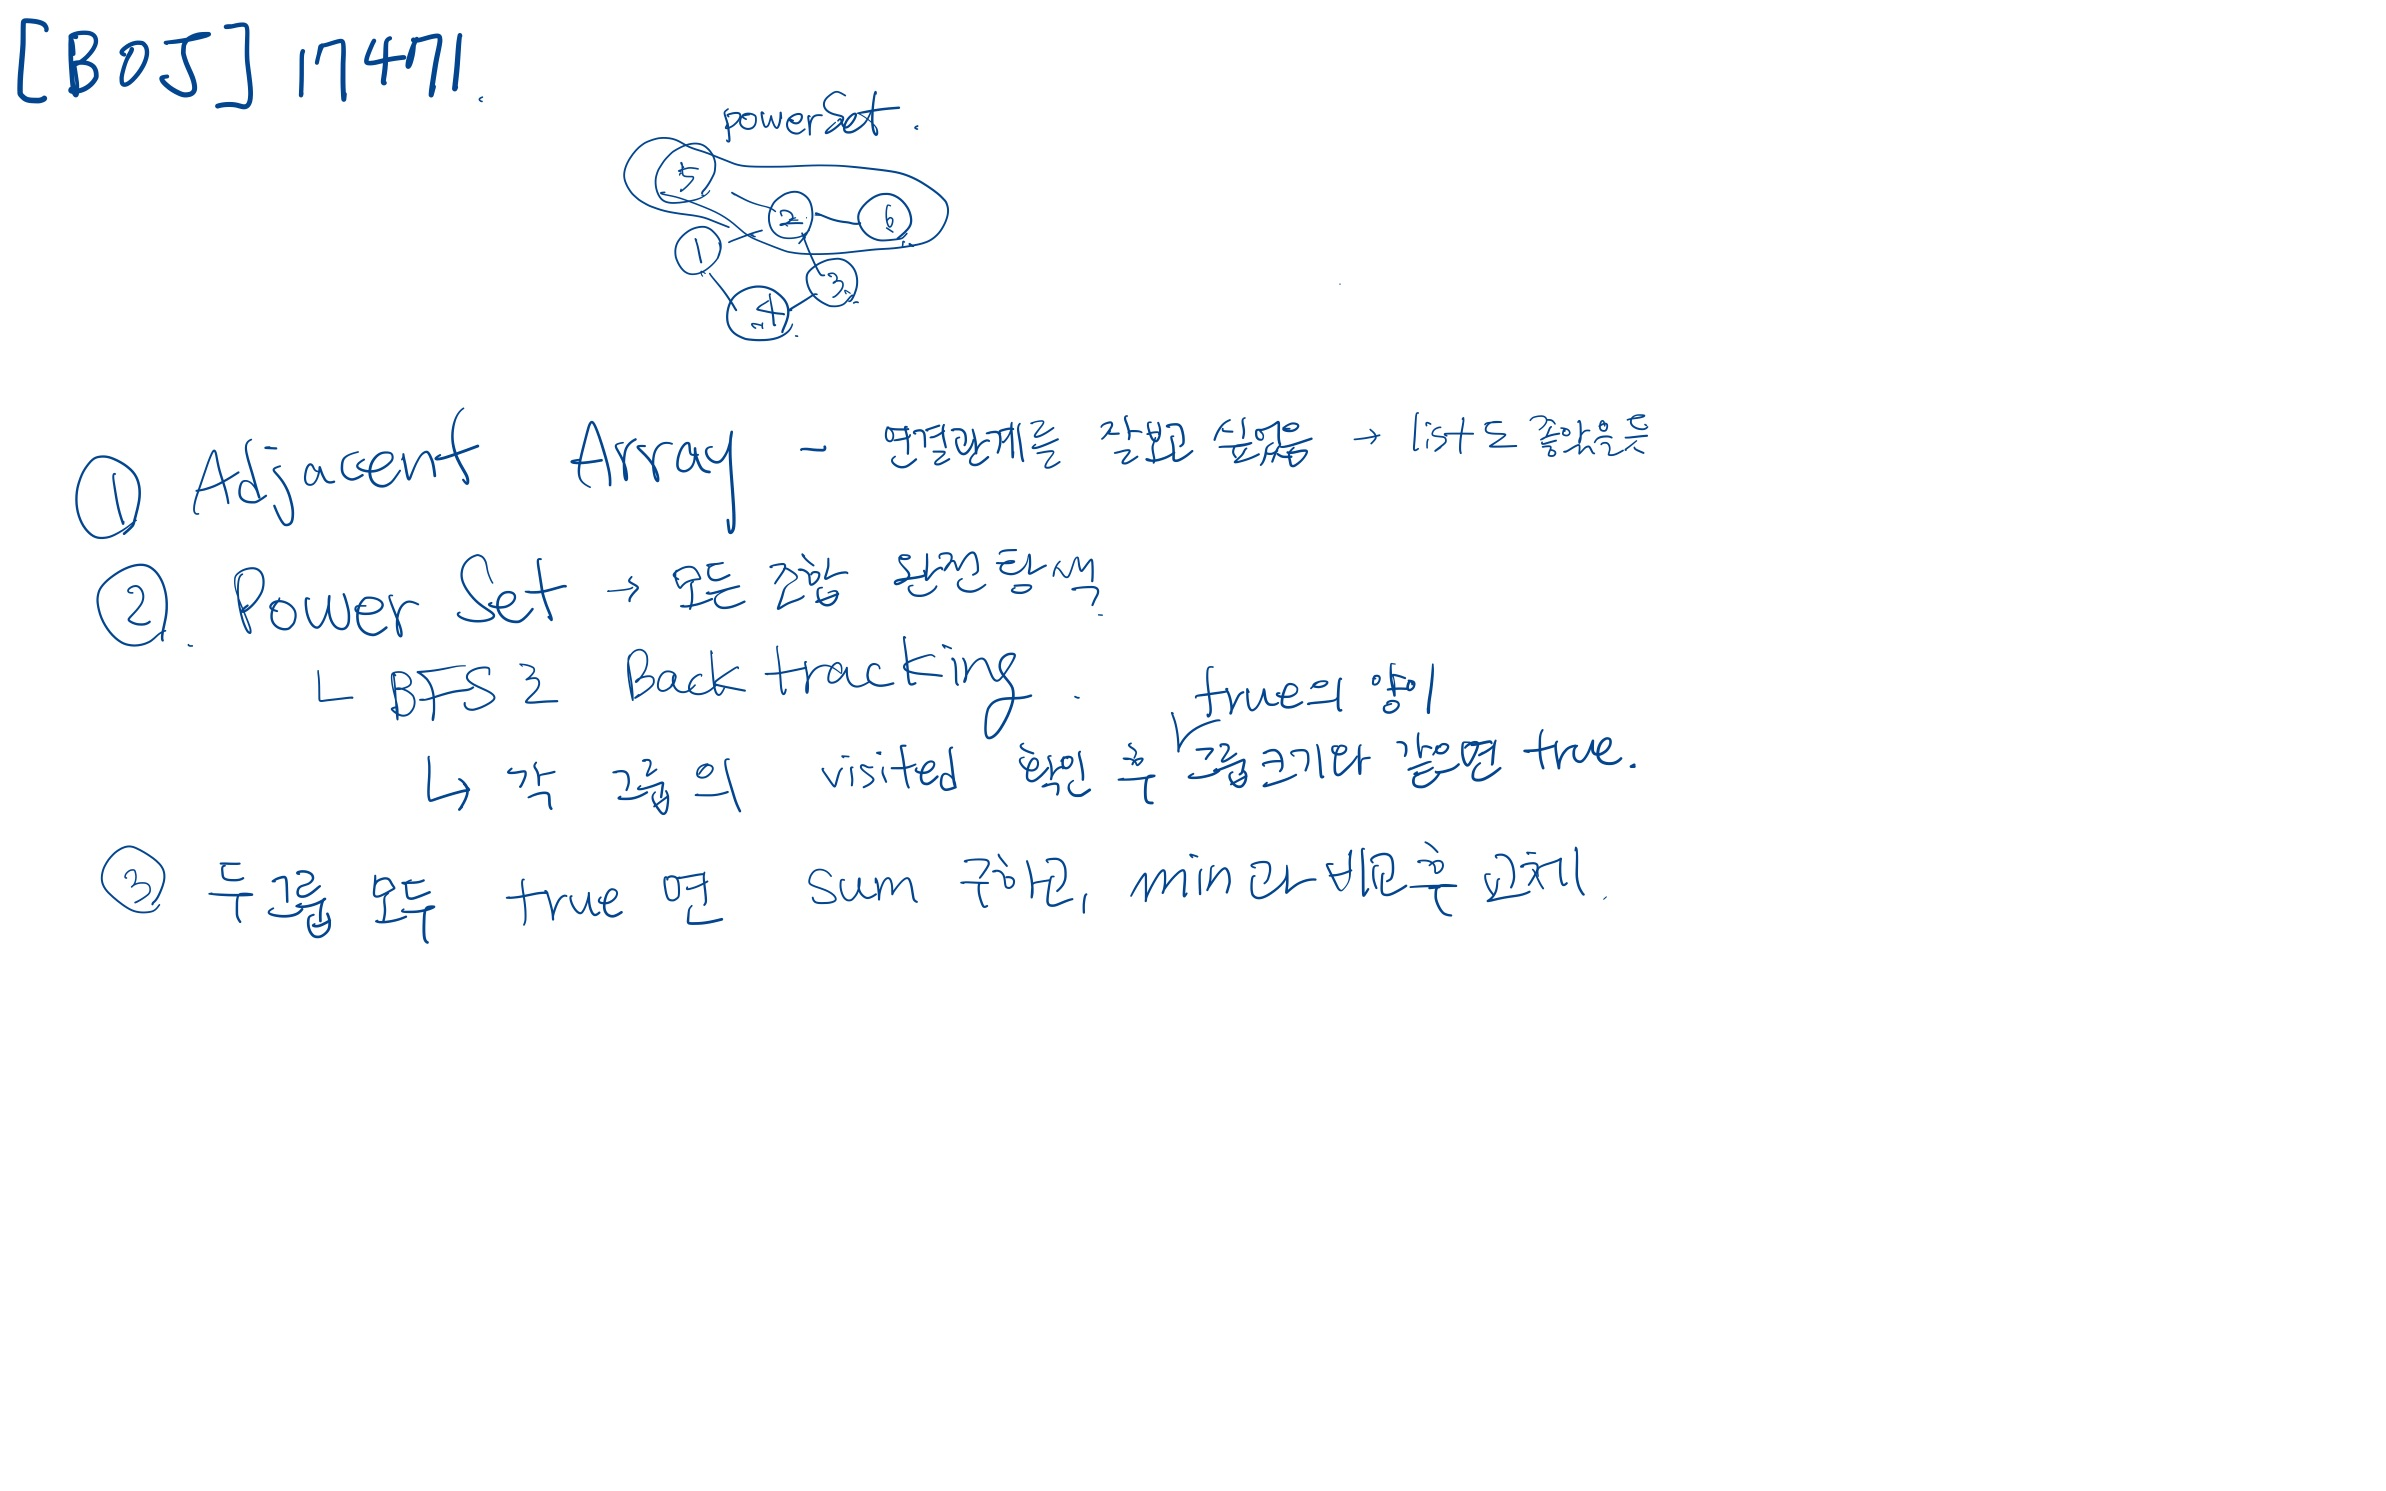 [BOJ] 17471.
powerSet.
5
2
6
1
3
4
① Adjacent Array ~ 연결관계를 갖고 있음 → list도 좋았을듯
②. Power Set → 모든 조합 완전탐색.
BFS로 Back tracking.
true의 양이
↳ 각 그룹의 visited 확인 후 그룹크기와 같으면 true.
③ 두그룹 모두 true 면 sum 구하고, min과 비교 후 교체.